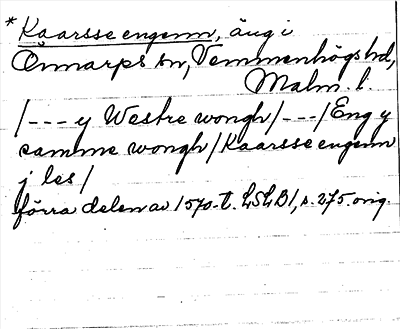 *Kaarsse engenn, äng i
Önnarps sn, Vemmenhögs hd,
Malm. l.
/--- y Westre wongh/---/Eng y
samme wongh/Kaarsse engenn
j les/
förra delen av 1570-t. LSLB/, s. 275. orig.